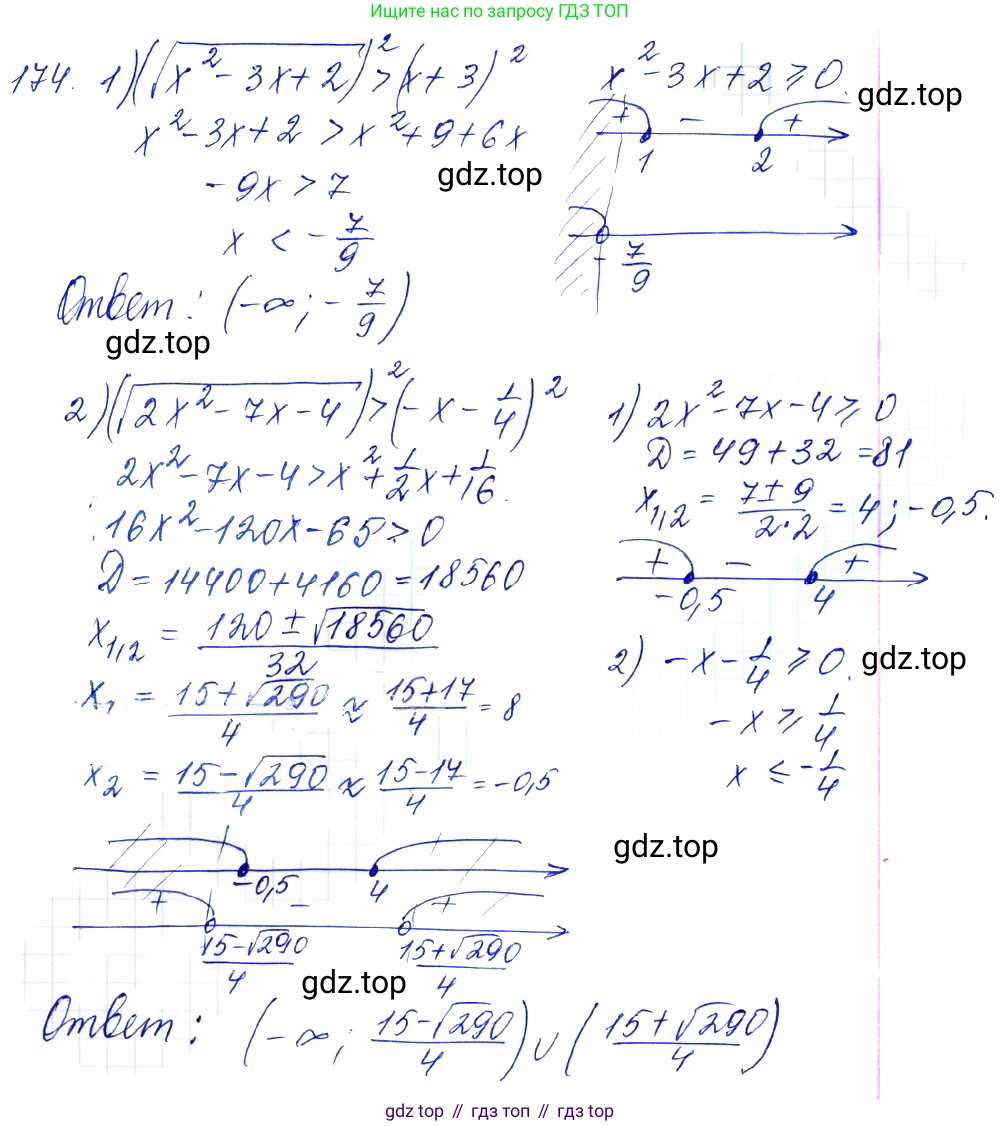 Ищите нас по запросу ГДЗ ТОП
174. 1) (√(x² - 3x + 2))² > (x + 3)²
x² - 3x + 2 > x² + 9 + 6x
- 9x > 7
x < - 7/9
Ответ: (-∞; - 7/9)
x² - 3x + 2 ≥ 0.
+ - +
1 2
- 7/9
gdz.top
gdz.top
gdz.top
2) (√(2x² - 7x - 4))² > (- x - 1/4)²
2x² - 7x - 4 > x² + 1/2 x + 1/16.
16x² - 120x - 65 > 0
D = 14400 + 4160 = 18560
x₁,₂ = (120 ± √18560)/32
x₁ = (15 + √290)/4 ≈ (15 + 17)/4 = 8
x₂ = (15 - √290)/4 ≈ (15 - 17)/4 = -0,5
1) 2x² - 7x - 4 ≥ 0
D = 49 + 32 = 81
x₁,₂ = (7 ± 9)/(2·2) = 4; -0,5.
+ - +
-0,5 4
2) - x - 1/4 ≥ 0.
- x ≥ 1/4
x ≤ - 1/4
gdz.top
gdz.top
-0,5 4
+ - +
(15 - √290)/4 (15 + √290)/4
gdz.top
Ответ: (-∞; (15 - √290)/4) ∪ ((15 + √290)/4)
gdz.top // гдз топ // гдз top